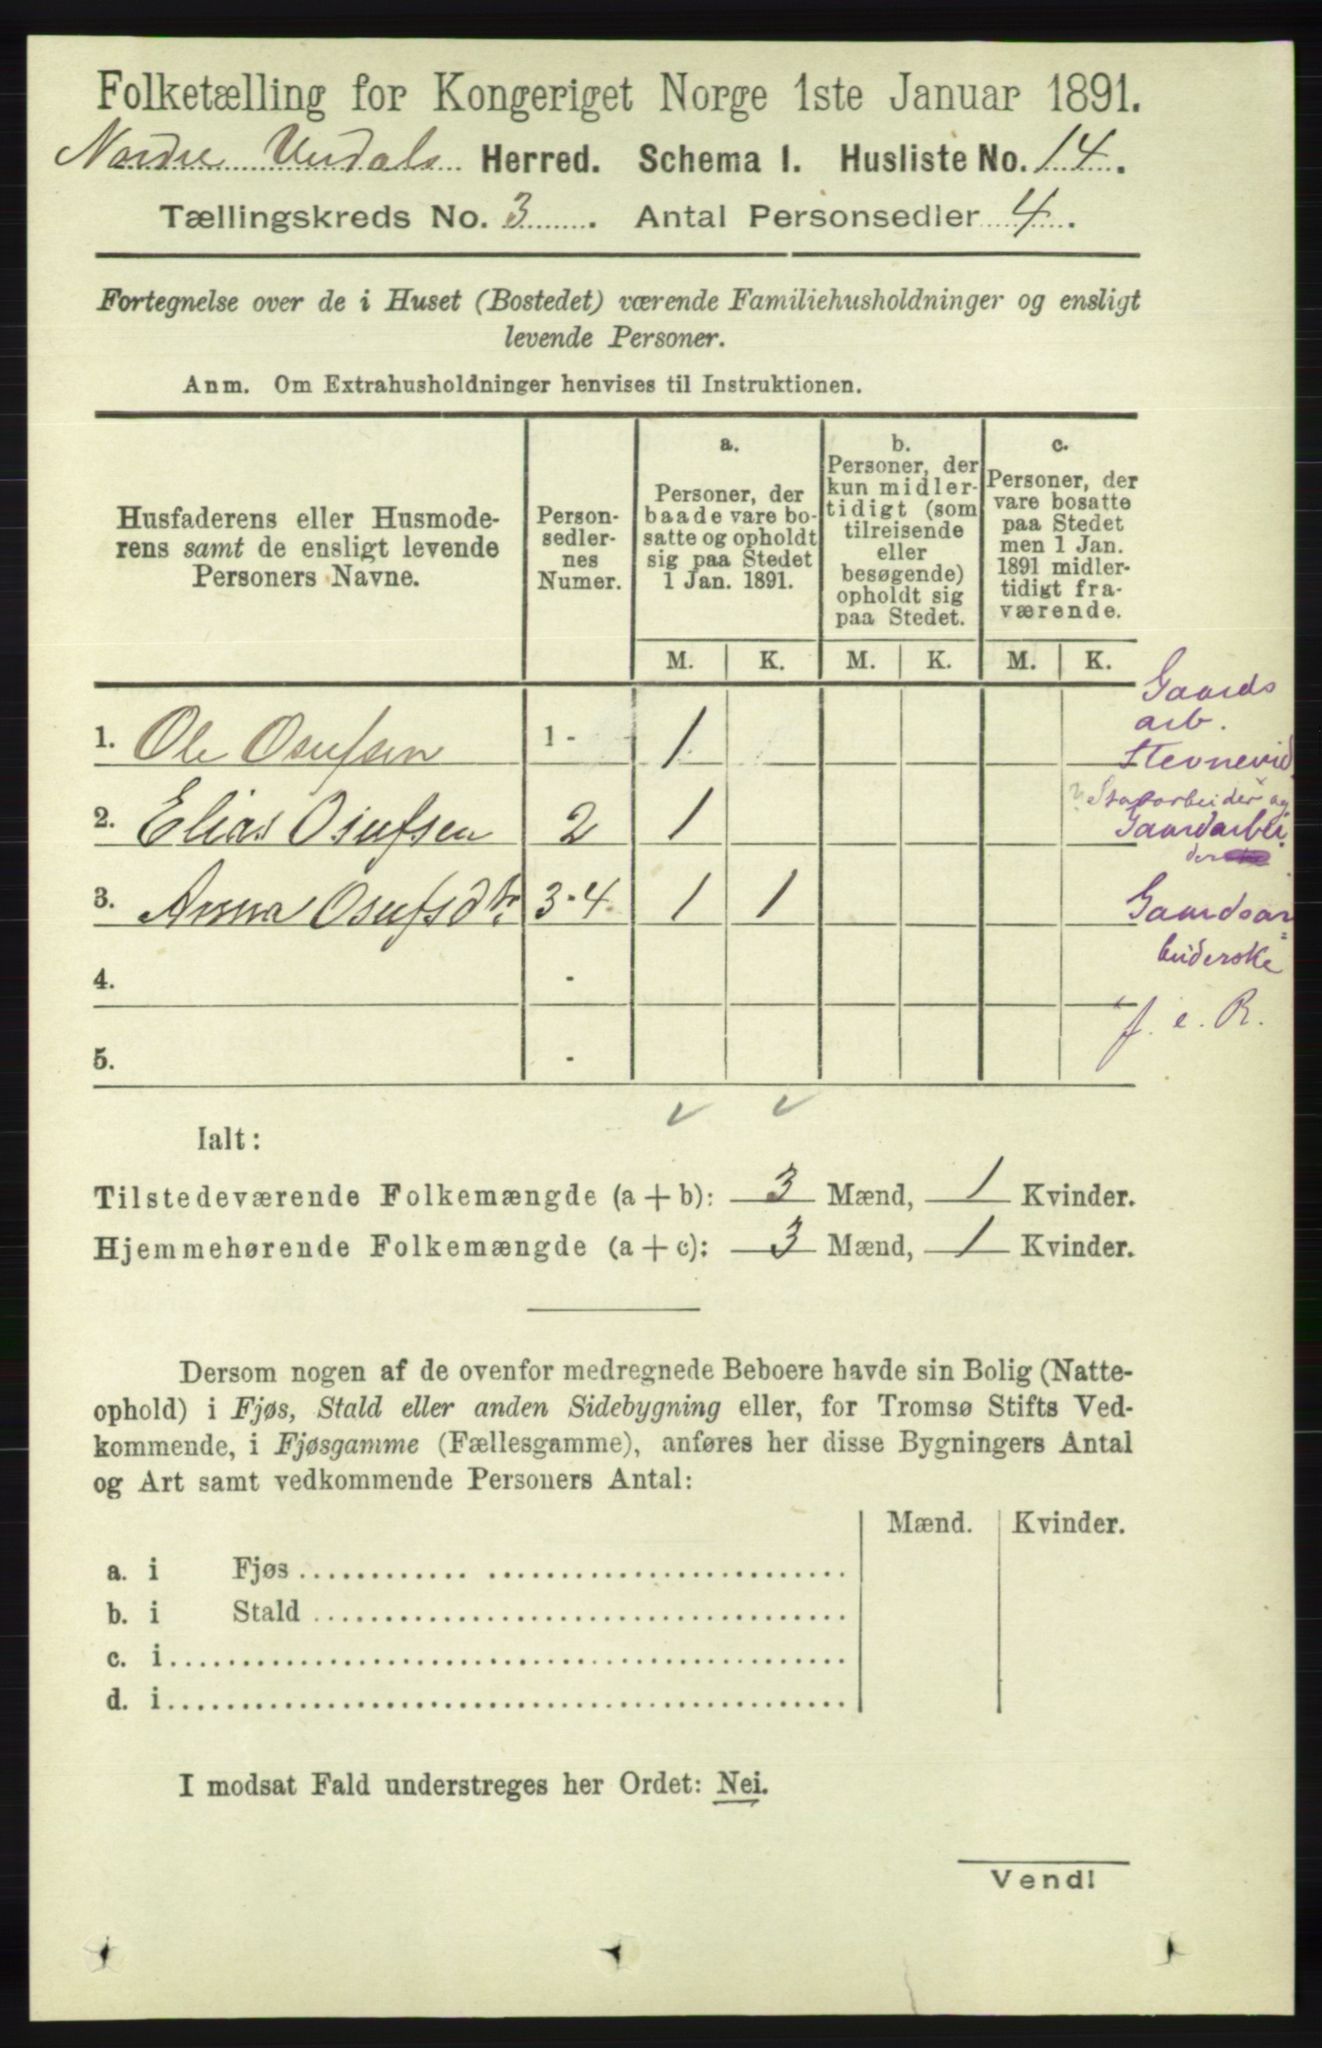 Folketælling for Kongeriget Norge 1ste Januar 1891.
Nordre Undals Herred. Schema I. Husliste No. 14.
Tællingskreds No. 3. Antal Personsedler 4.
Fortegnelse over de i Huset (Bostedet) værende Familiehusholdninger og ensligt
levende Personer.
Anm. Om Extrahusholdninger henvises til Instruktionen.
Husfaderens eller Husmode-
rens samt de ensligt levende
Personers Navne.
Person-
sedler-
nes
Numer.
a.
Personer, der
baade vare bo-
satte og opholdt
sig paa Stedet
1 Jan. 1891.
b.
Personer, der
kun midler-
tidigt (som
tilreisende
eller
besøgende)
opholdt sig
paa Stedet.
c.
Personer, der
vare bosatte
paa Stedet
men 1 Jan.
1891 midler-
tidigt fra-
værende.
M. K. M. K. M. K.
1. Ole Osufsen 1 - 1
Gaards
arb.
Stevnevid
2. Elias Osufsen 2 1
og
Gaardarbei
der
3. Anna Osufsdtr. 3-4. 1 1
Gaardsar
beiderske
4. -
f. e. R.
5. -
Ialt:
Tilstedeværende Folkemængde (a + b): 3 Mænd, 1 Kvinder.
Hjemmehørende Folkemængde (a + c): 3 Mænd, 1 Kvinder.
Dersom nogen af de ovenfor medregnede Beboere havde sin Bolig (Natte-
ophold) i Fjøs, Stald eller anden Sidebygning eller, for Tromsø Stifts Ved-
kommende, i Fjøsgamme (Fællesgamme), anføres her disse Bygningers Antal
og Art samt vedkommende Personers Antal:
Mænd. Kvinder.
a. i Fjøs
b. i Stald
c. i
d. i
I modsat Fald understreges her Ordet: Nei.
Vend!